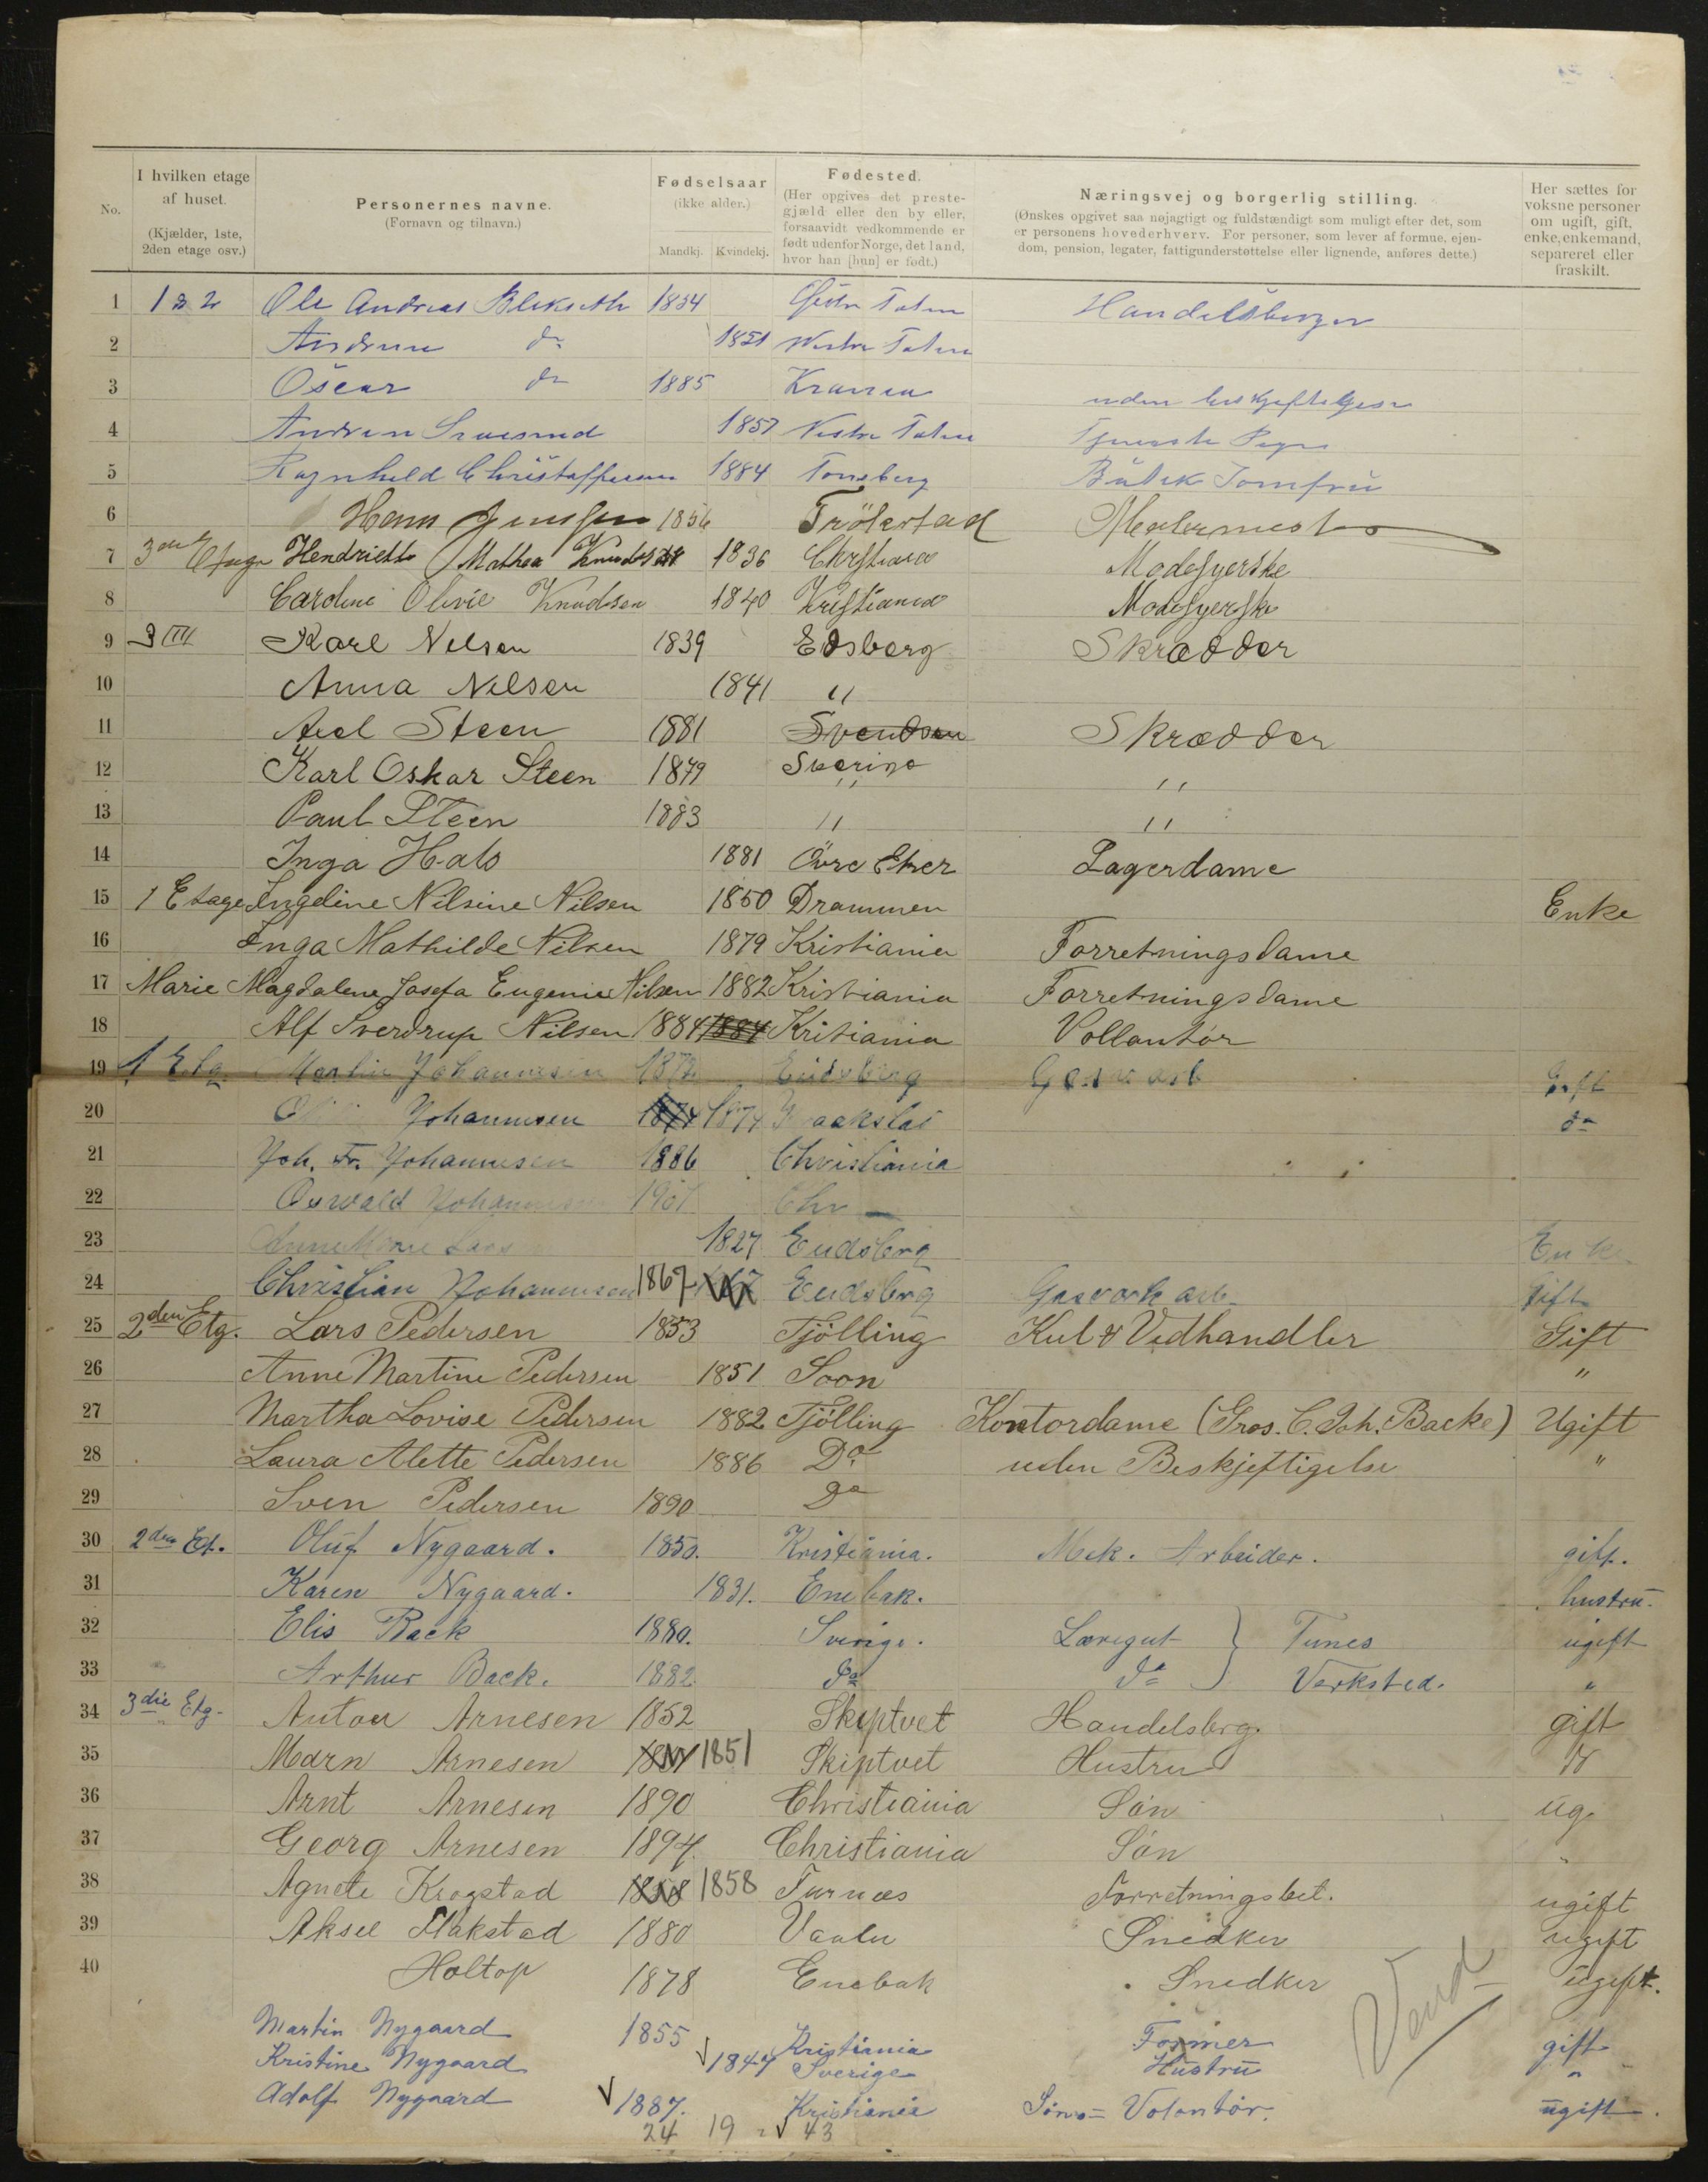 No.
I hvilken etage af huset. (Kjælder, 1ste, 2den etage osv.)
Personernes navne. (Fornavn og tilnavn.)
Fødselsaar (ikke alder.)
Mandkj. Kvindekj.
Fødested. (Her opgives det prestegjæld eller den by eller, forsaavidt vedkommende er født udenfor Norge, det land, hvor han [hun] er født.)
Næringsvej og borgerlig stilling. (Ønskes opgivet saa nøjagtigt og fuldstændigt som muligt efter det, som er personens hovederhverv. For personer, som lever af formue, ejendom, pension, legater, fattigunderstøttelse eller lignende, anføres dette.)
Her sættes for voksne personer om ugift, gift, enke, enkemand, separeret eller fraskilt.
1 Ole Andreas Blekseth 1854 Østre Toten Handelsborger
2 do 1851 Vestre Toten
3 Oscar do 1885 uden
4 1857 Vestre Toten Pige
5 Ragnhild Christoffersen 1884 Tonsberg Butik Jomfru
6 Hans Jensen 1856 Trögstad Malermester
7 3die Etage Hendriette Mathea Knudsen 1836 Chrstiania Modesyerske
8 Caroline Olivie Knudsen 1840 Kristiania Modesyerske
9 3 III Karl Nelsen 1839 Edsberg Skrædder
10 Anna Nelsen 1841 "
11 Axel Steen 1881 Svendsen Skrædder
12 Karl Oskar Steen 1879 Sverige " "
13 Paul Steen 1883 " "
14 Inga Hals 1881 Övre Eker Lagerdame
15 1 Etage Ingeline Nilsine Nilsen 1850 Drammen Enke
16 Inga Mathilde Nilsen 1879 Kristiania Forretningsdame
17 Marie Magdalene Josefa Eugenie Nilsen 1882 Kristiania Forretningsdame
18 Alf Sverdrup Nilsen 1884 1884 Kritiania Vollantør
19 1 Etg Johannesen 1872 Eidsberg Gift
20 Johannesen 1874 1874 do
21 Joh. Fr. Johannesen 1886 Christiania
22 Oswald Johannesen Chr
23 Anne Marie 1827 Eudsberg Enke
24 Christian Johannesen 1867 Eudsberg Gasverk arb. Gift
25 2den Etg. Lars Pedersen 1853 Tjölling Kul & Vedhandler Gift
26 Anne Martine Pedersen 1851 Soon "
27 Martha Lovise Pedersen 1882 Tjölling Kontordame (Gros. C. Joh. Backe) Ugift
28 Laura Alette Pedersen 1886 Do uden Beskjeftigelse "
29 Sven Pedersen 1890 Do
30 2den Et. Oluf Nygaard. 1850. Kristiania. Mek. Arbeider. gift.
31 Karen Nygaard. 1831. Enebak. hustru.
32 Elis Back 1880. Sverige. Læregut } Tunes ugift
33 Arthur Back. 1882 do do } Verksted. "
34 3die Etg. Anton Arnesen 1852 Skiptvet Handelsbrg. gift
35 Marn Arnesen 1851 Skiptvet Hustru
36 Arnt Arnesen 1890 Christiania Sön ug.
37 Georg Arnesen 1894 Christiania Sön "
38 Agnete Krogstad 1858 1858 Furnæs Forretningsbet. ugift
39 Aksel Flakstad 1880 Vaaler Snedker ugift
40 Holtop 1878 Enebak Snedker ugift.
Vend
Martin Nygaard 1855 Kristiania Former gift
Kristine Nygaard 1844 Sverige Hustru "
Adolf Nygaard 1887. Kristiania Søn Volontør. ugift.
24 19 = 43